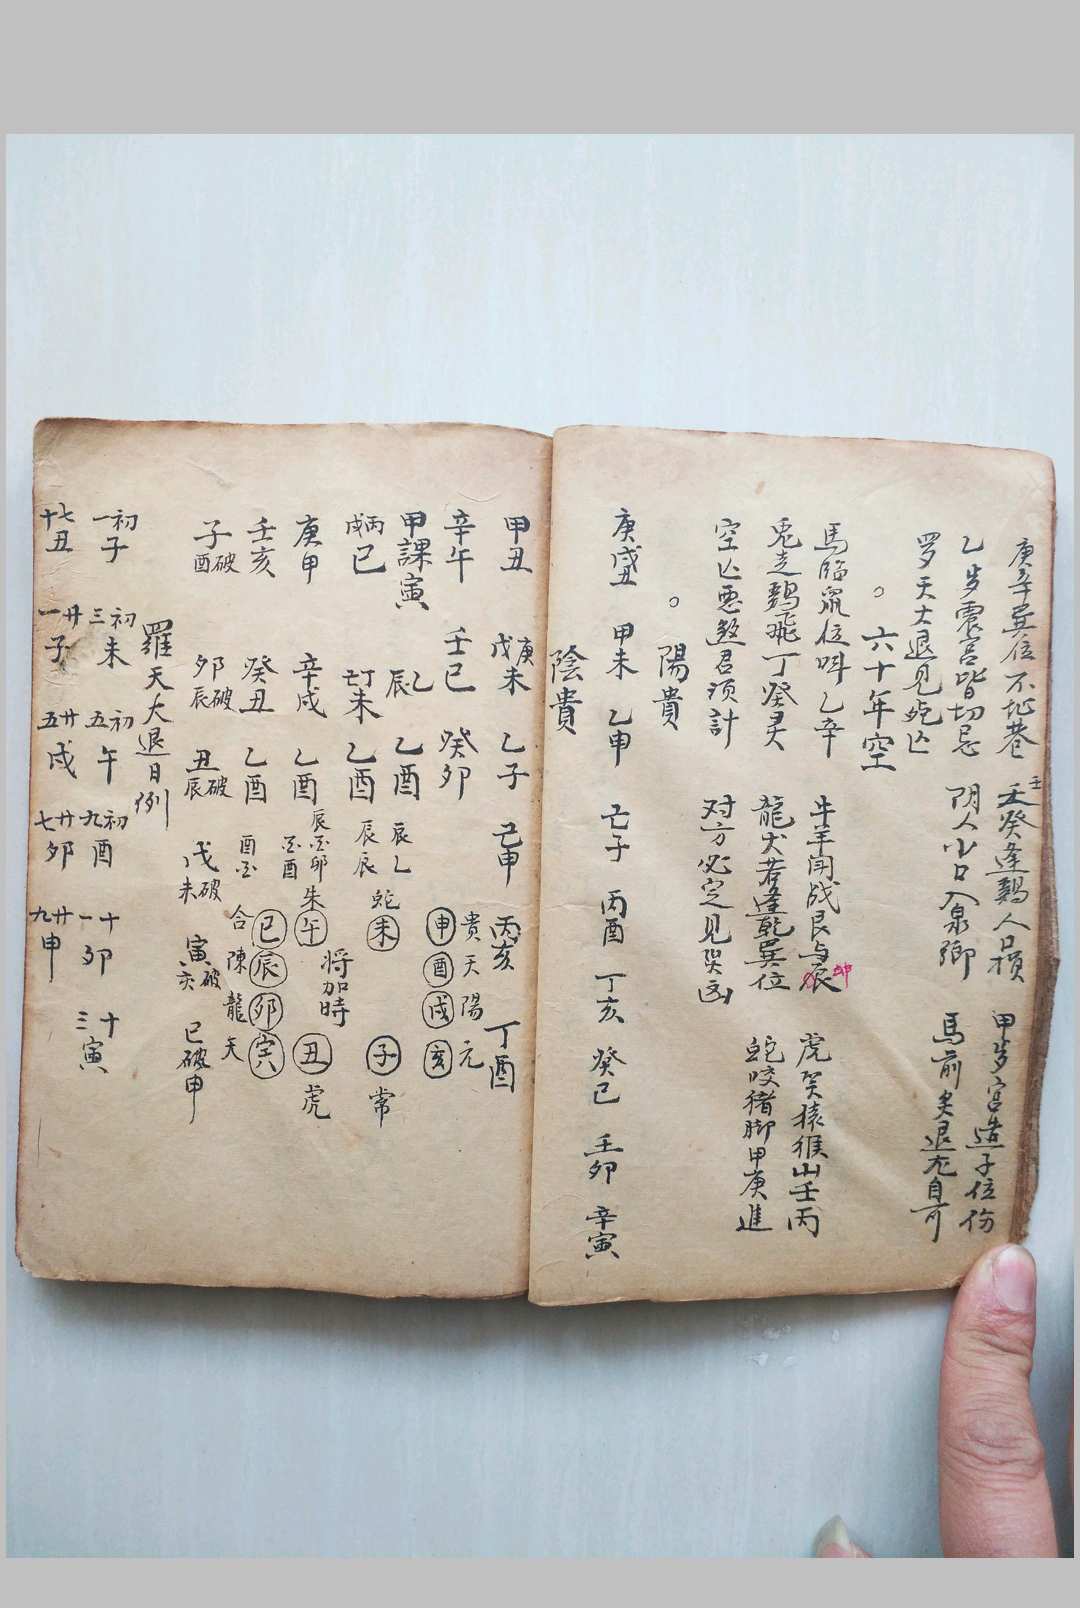 庚辛巽位不 巷 壬癸逢鷄人口損 甲岁宫造子位伤
乙岁震宫皆切忌 阴人小口入泉鄉
罗天大退見 亡 馬前 退 自
六十年空
馬臨鼠位呌乙辛 牛羊闬战艮与辰 虎哭猿猴山壬丙
兎走鷄飛丁癸灵 龍犬若逢乾巽位 蛇咬猪脚甲庚進
空亡恶煞君须計 对方必定見哭凶
陽貴
庚戊丑 甲未 乙申 亡子 丙酉 丁亥 癸已 壬卯 辛寅
陰貴
甲丑 庚戊未 乙子 己申 丙亥 丁酉
辛午 壬巳 癸卯 貴天陽元
申酉戌亥
甲課寅 乙辰 乙酉 辰乙
丙戌已 丁未 乙酉 辰辰 蛇 未 子 常
將加時
庚申 辛戌 乙酉 朱 午 丑 虎
壬亥 癸丑 乙酉 巳辰卯寅
合陳龍天
子破酉 卯破辰 丑破辰 戊破未 寅破亥 巳破申
羅天大退日例
初一子 初三未 初五午 初九酉 十一卯 十三寅
十七丑 廿一子 廿五戌 廿七卯 廿九申